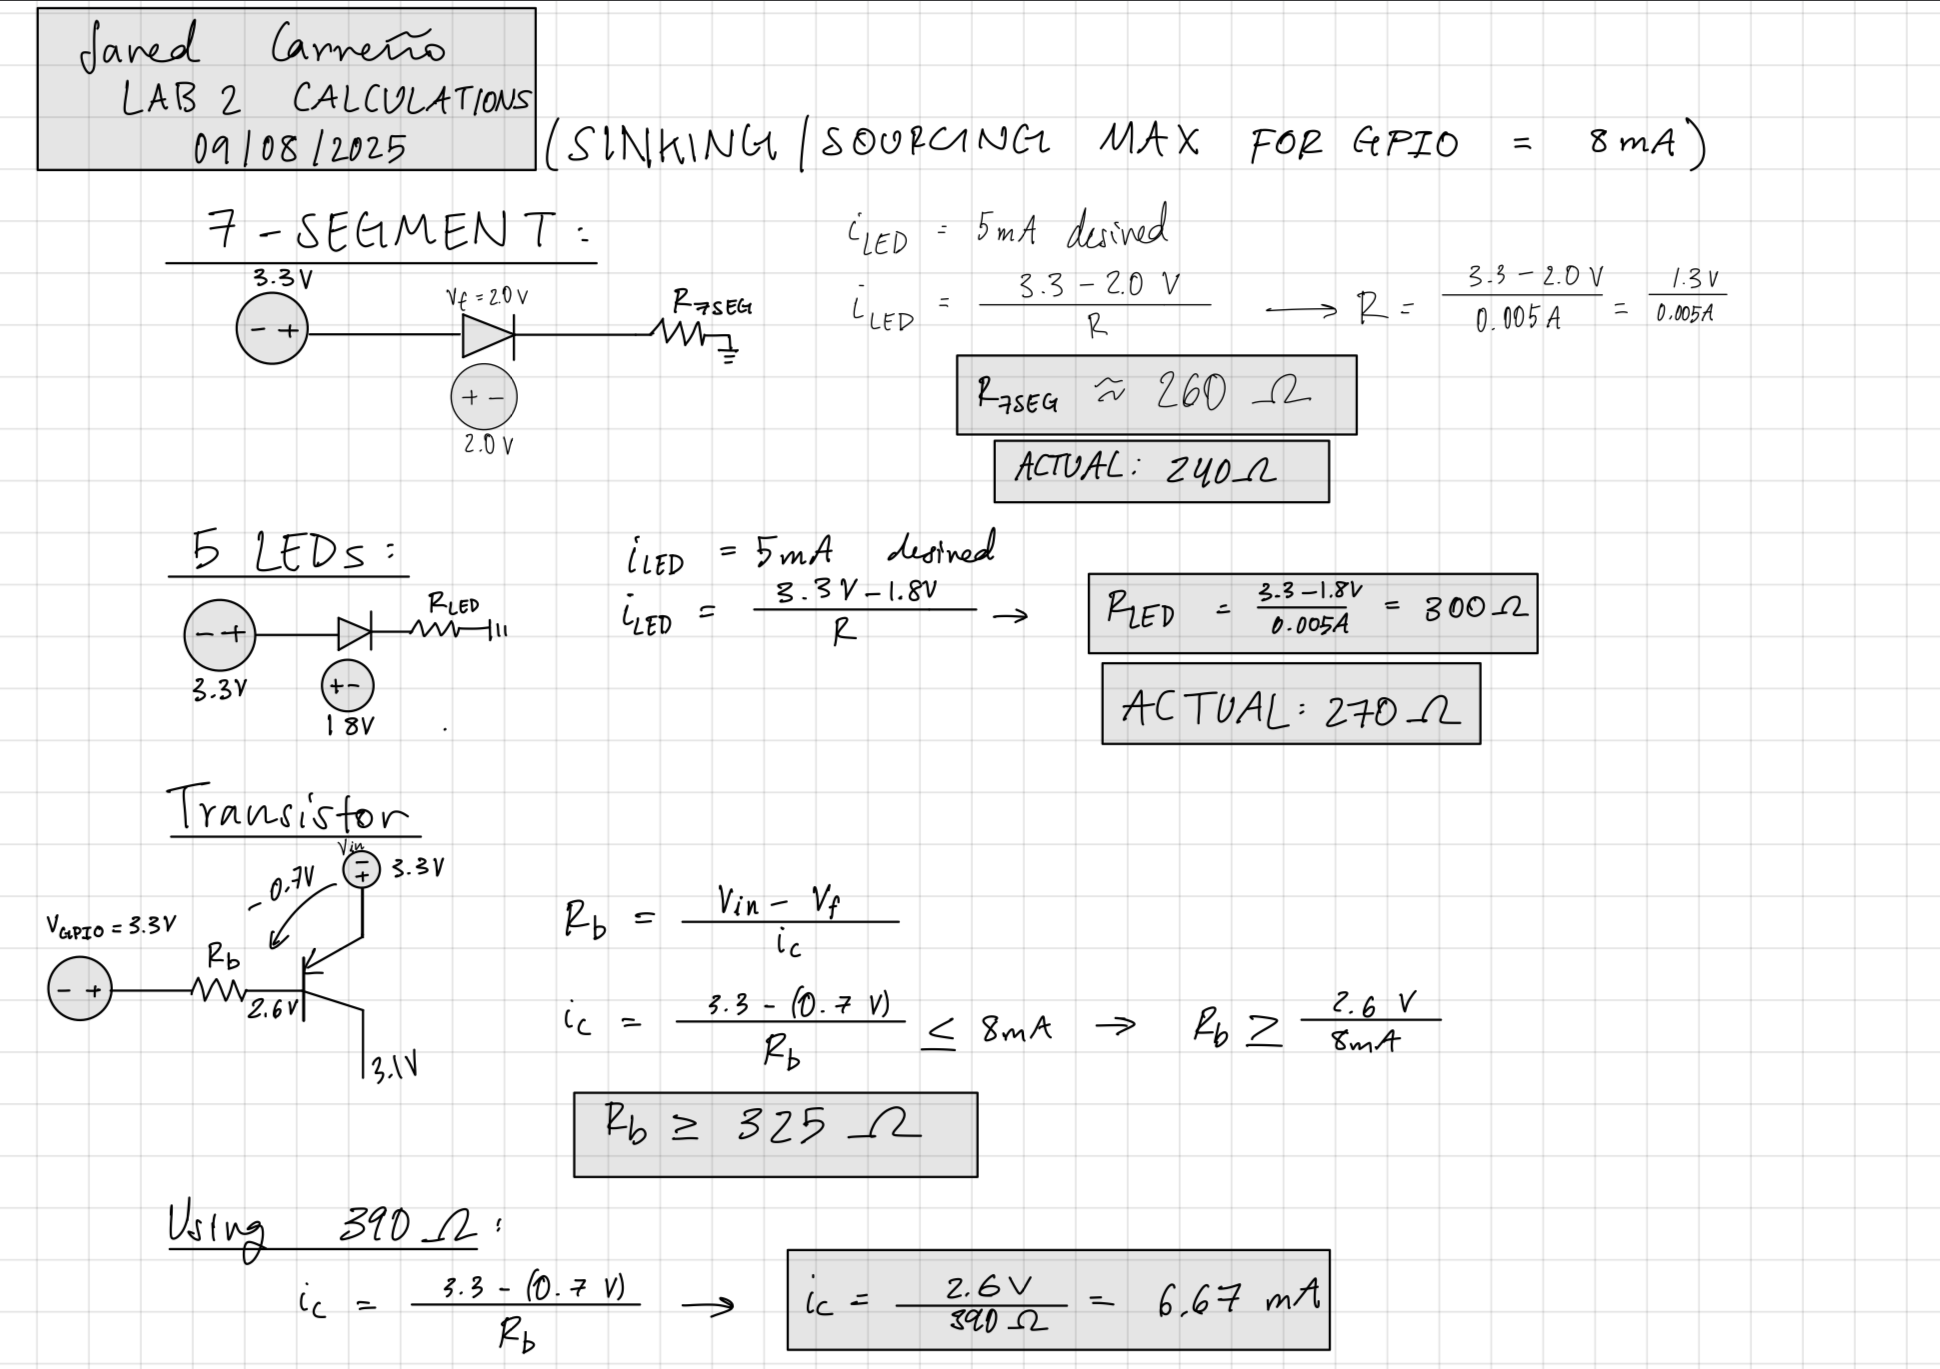 Jared Carreño
LAB 2 CALCULATIONS
09/08/2025
(SINKING/SOURCING MAX FOR GPIO = 8mA)
7-SEGMENT:
3.3V
Vf = 2.0V
R7SEG
- +
+ -
2.0V
iLED = 5mA desired
iLED = (3.3 - 2.0 V)/R → R = (3.3 - 2.0 V)/(0.005A) = (1.3V)/(0.005A)
R7SEG ≈ 260 Ω
ACTUAL: 240Ω
5 LEDs:
RLED
- +
3.3V
+-
1 8V
iLED = 5mA desired
iLED = (3.3V - 1.8V)/R →
RLED = (3.3 - 1.8V)/(0.005A) = 300Ω
ACTUAL: 270Ω
Transistor
Vin
- +
3.3V
- 0.7V
VGPIO = 3.3V
Rb
- +
2.6V
3.1V
Rb = (Vin - Vf)/ic
ic = (3.3 - (0.7 V))/Rb ≤ 8mA → Rb ≥ (2.6 V)/(8mA)
Rb ≥ 325 Ω
Using 390Ω:
ic = (3.3 - (0.7 V))/Rb →
ic = (2.6V)/(390Ω) = 6.67 mA